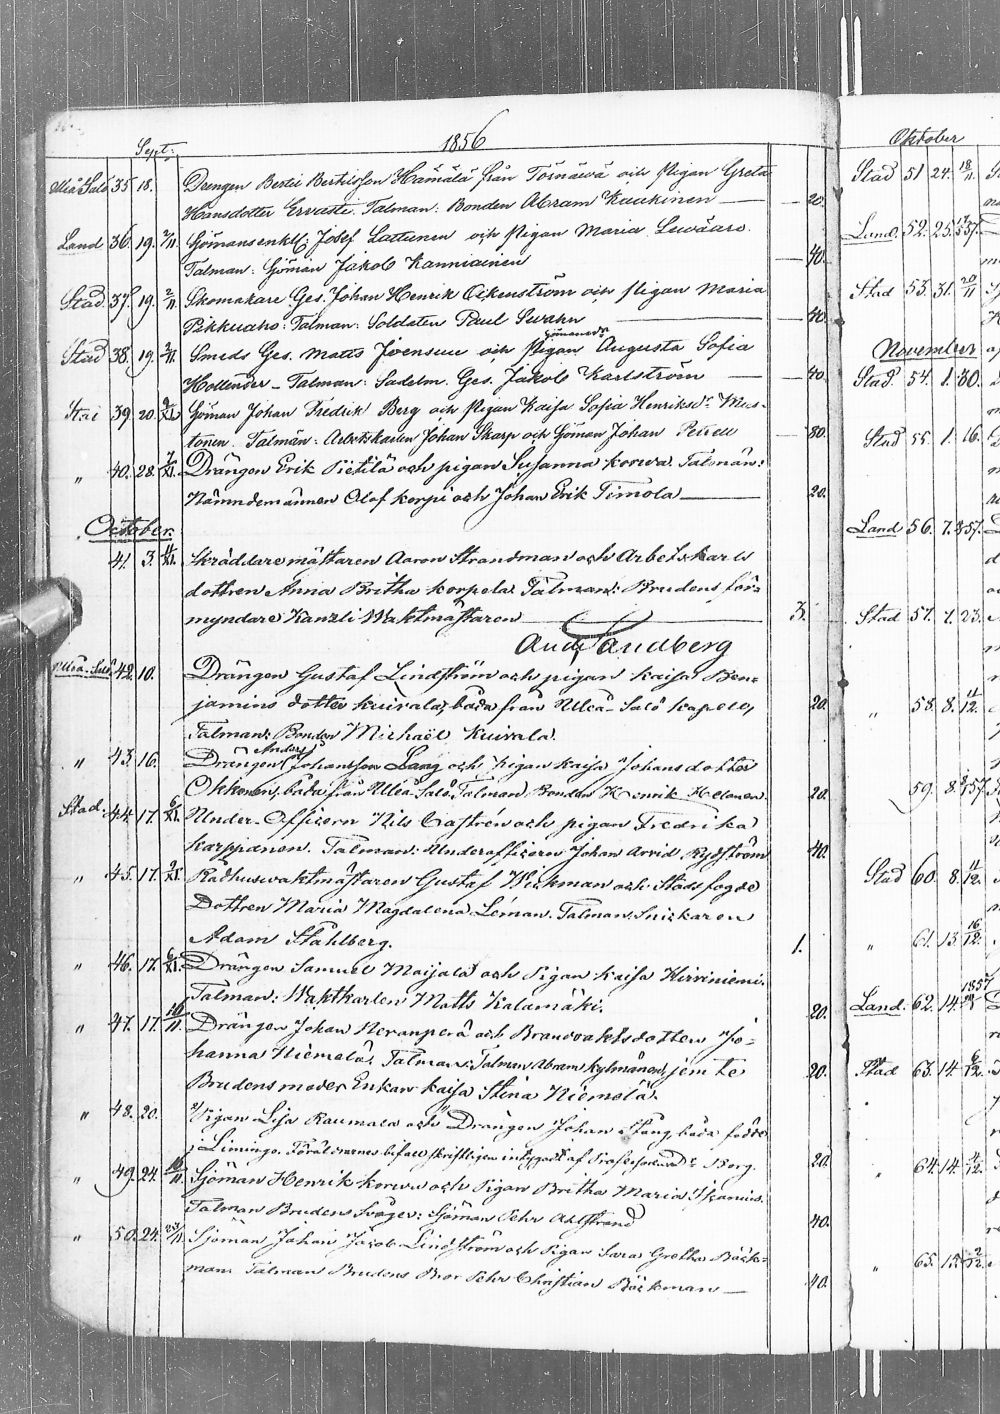 1856
Sept:
Uleå Salo 35 18. Drengen Bertil Bertilsson Hämälä från Törnävä och Pigan Greta
Hansdotter Ervasti. Talman: Bonden Abram Kaukinen — 20.
Land 36. 19. 2/11. Sjömansenkl: Josef Lattunen och Pigan Maria Lewäaro.
Talman: Sjöman Jakob Kanniainen — 40.
Stad 37. 19. 2/11 Skomakare Ges. Johan Henrik Eckenström och Pigan Maria
Pikkuaho: Talman: Soldaten Paul Swahn — 40.
Stad 38. 19. 2/11. Smeds Ges. Matts Joensuu och Pigan Sjömansdr Augusta Sofia
Hollender — Talman: Sadelm. Ges. Jakob Karlström — 40.
Stad 39. 20. 9/XI. Sjöman Johan Fredrik Berg och Pigan Kajsa Sofia Henriksdr Mus-
tonen. Talmän: Arbetskarlen Johan Skarp och Sjöman Johan Petrell — 80.
" 40. 28. 7/XI. Drängen Erik Pietilä och pigan Susanna Korwa. Talmän:
Nämndemännen Olof Korpi och Johan Erik Timola — 20.
October.
41. 3. 11/XI. Skräddaremästaren Aaron Strandman och Arbetskarls
dottren Anna Britha Korpela. Talman: Brudens för-
myndare Kanzli Waktmästaren — 3.
And. Sandberg
Uleå-Salo 42. 10. Drängen Gustaf Lindström och pigan Kaisa Ben-
jamins dotter Kuivala, båda från Uleå-Salo Kapell, 20.
Talman: Bonden Michaël Kuivala.
" 43. 16. Drängen Anders Johansson Lang och Pigan Kaisa Johansdotter
Okkonen, båda från Uleå Salo. Talman Bonden Henrik Helanen. 20.
Stad. 44. 17. 6/XI. Under-Officern Nils Castrén och pigan Fredrika
Karppanen. Talman: Underofficern Johan Arvid Rydström 40.
" 45. 17. 2/XI. Rådhuswaktmästaren Gustaf Wickman och Stads fogde
Dottren Maria Magdalena Léman. Talman: Snickaren
Adam Ståhlberg. 1.
" 46. 17. 6/XI. Drängen Samuel Maijala och Pigan Kaisa Hirviniemi.
Talman: Waktkarlen Matts Kalamäki. 20.
" 47. 17. 16/11. Drängen Johan Hevanperä och Brandvaktsdottern Jo-
hanna Niemelä. Talman: Talman Abram Kylmänen, jemte 20.
Brudens moder Enkan Kaisa Stina Niemelä.
" 48. 20. Pigan Lisa Raumala och Drängen Johan Stång, båda födde
i Limingo. Föräldrarnes bifall skriftligen intygadt af Borg. 20.
" 49. 24. 16/11 Sjöman Henrik Korwa och Pigan Britha Maria Ikonius.
Talman Brudens Svåger: Sjöman Pehr Ahlstrand 40.
" 50. 24. 23/11 Sjöman Johan Jacob Lindström och Pigan Sara Gretha Bäck-
man. Talman Brudens Bror Pehr Christian Bäckman — 40.
Oktober
Stad 51 24. 18/11
Land 52. 25.
Stad 53. 31. 20/11
November
Stad. 54. 1. 30.
Stad 55. 1. 16.
Land 56. 7.
Stad 57. 7. 23.
" 58. 8. 11/12.
59. 8.
Stad 60. 8. 11/12.
" 61. 13. 16/12.
Land. 62. 14. 1857
Stad 63. 14. 6/12.
" 64. 14. 4/12.
" 65. 15. 2/12.